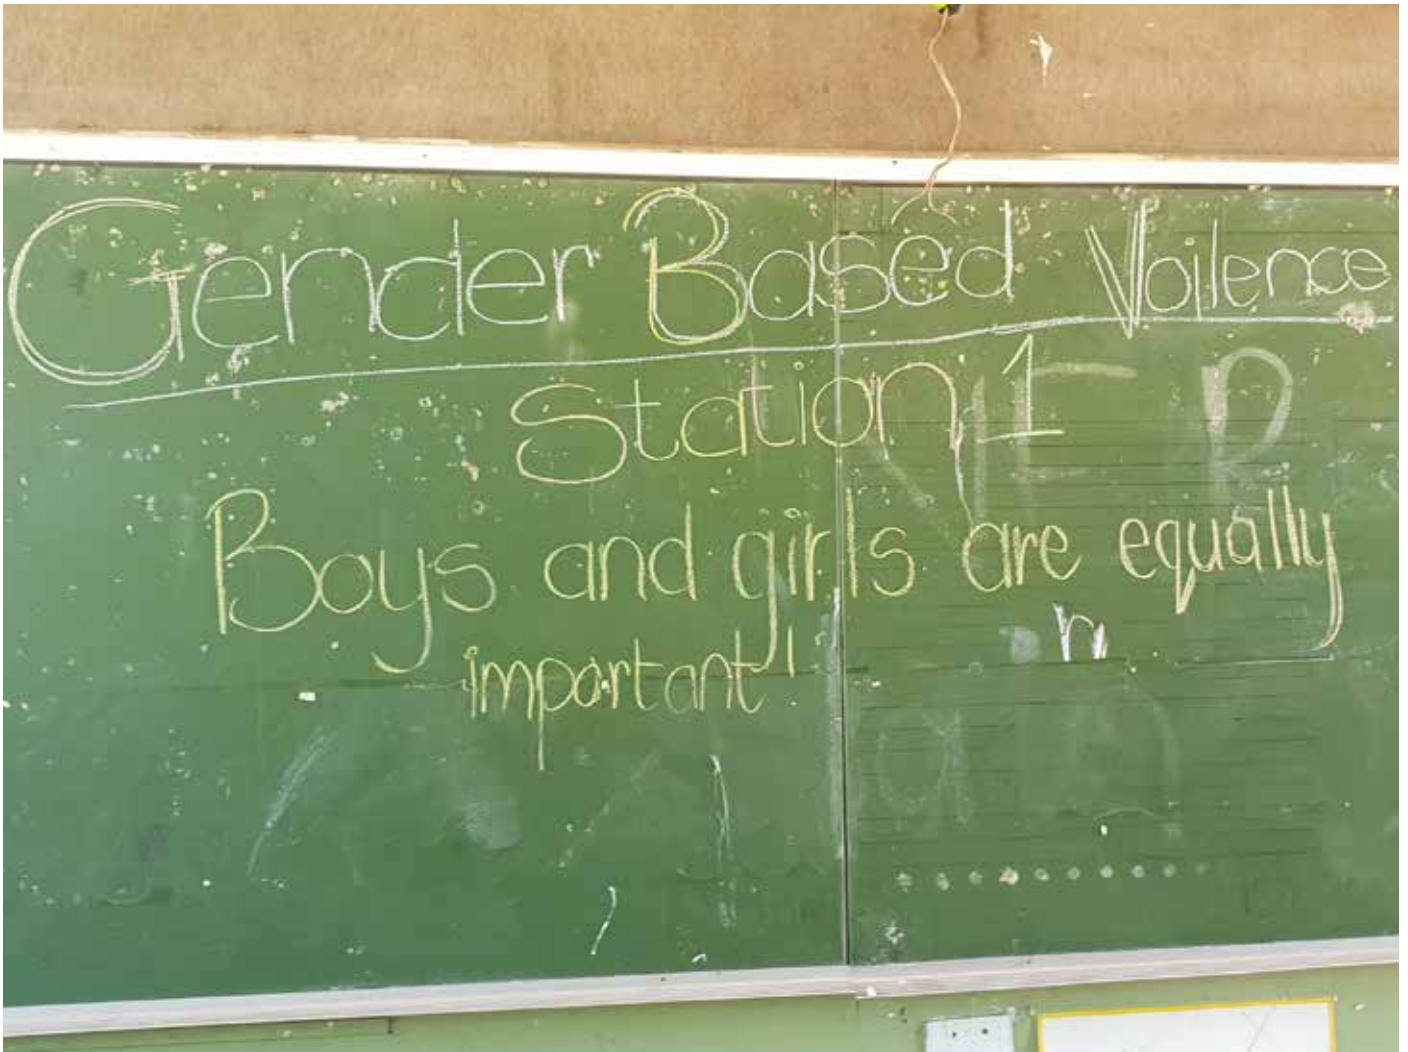 Gender Based Voilence
Station 1
Boys and girls are equally
important!